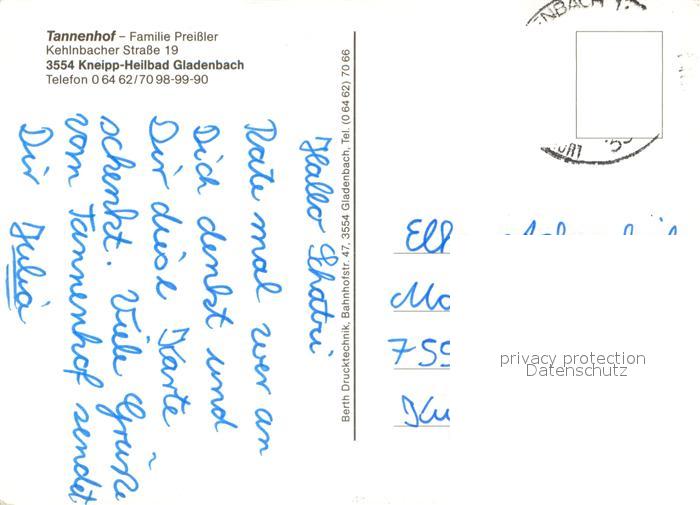 Tannenhof – Familie Preißler
Kehlnbacher Straße 19
3554 Kneipp-Heilbad Gladenbach
Telefon 0 64 62/70 98-99-90
Hallo Schatzi
Rate mal wer an
Dich denkt und
Dir diese Karte
schenkt. Viele Grüße
vom Tannenhof sendet
Dir Julia
Berth Drucktechnik, Bahnhofstr. 47, 3554 Gladenbach, Tel. (0 64 62) 70 66
privacy protection
Datenschutz